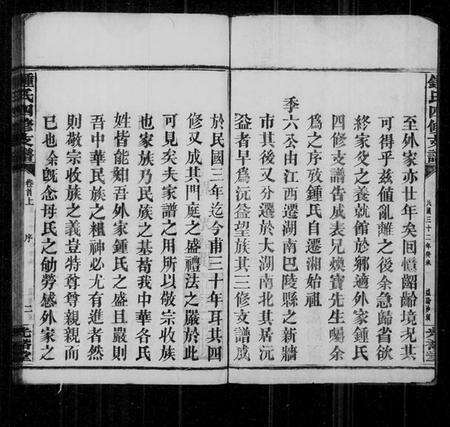 鍾氏四修支譜
民國三十二年癸未
至外家亦廿年矣回憶齠齡境况其
可得乎茲值亂離之後余急歸省欲
終家父之養就館於鄉適外家鍾氏
四修支譜告成表兄煥寶先生囑余
爲之序攷鍾氏自遷湘始祖
季六公由江西遷湖南巴陵縣之新牆
市其後又分遷於大湖南北其居沅
益者早爲沅益望族其三修支譜成
於民國三年迄今甫三十年耳其四
修又成其門庭之盛禮法之嚴於此
可見矣夫家譜之用所以敬宗收族
也家族乃民族之基苟我中華各氏
姓皆能如吾外家鍾氏之盛且嚴則
吾中華民族之精神必尤有進者然
則敬宗收族之義豈特尊尊親親而
已也余旣念母氏之劬勞感外家之
鍾氏四修支譜
卷首上
序